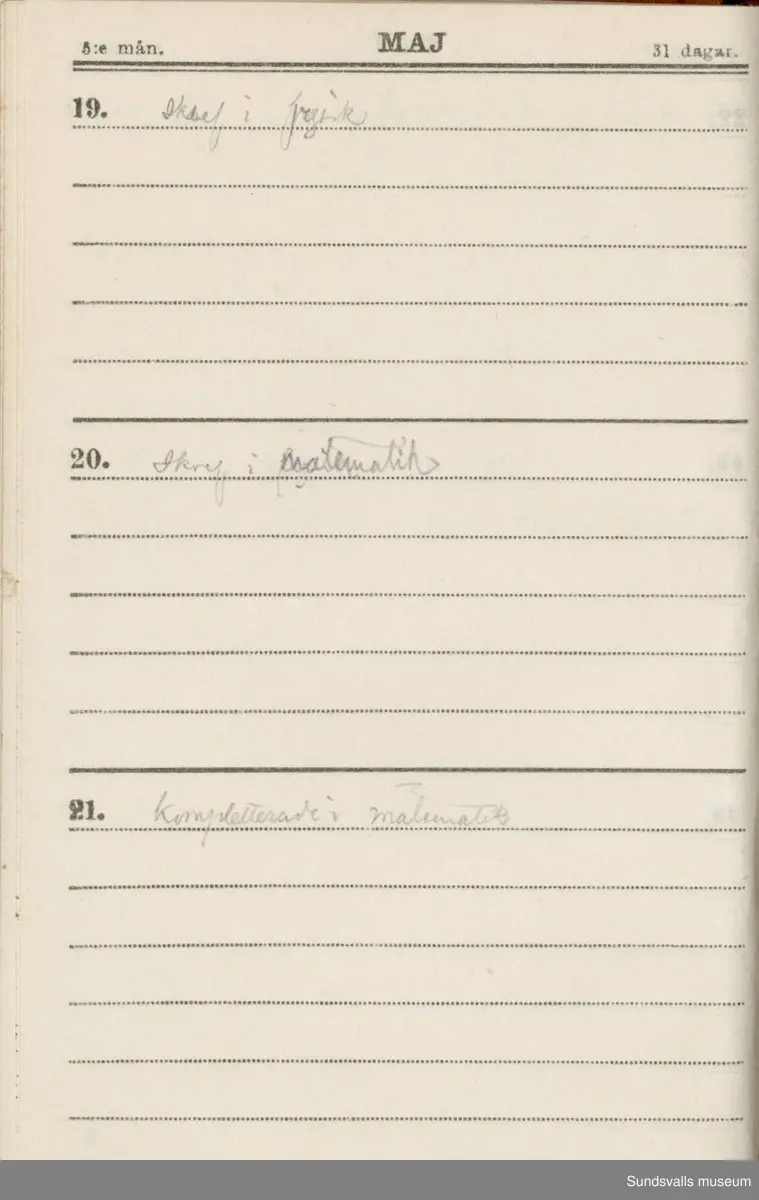 5:e mån. MAJ 31 dagar.
19. Skref i fysik
20. Skref i matematik
21. Kompletterade i matematik
Sundsvalls museum